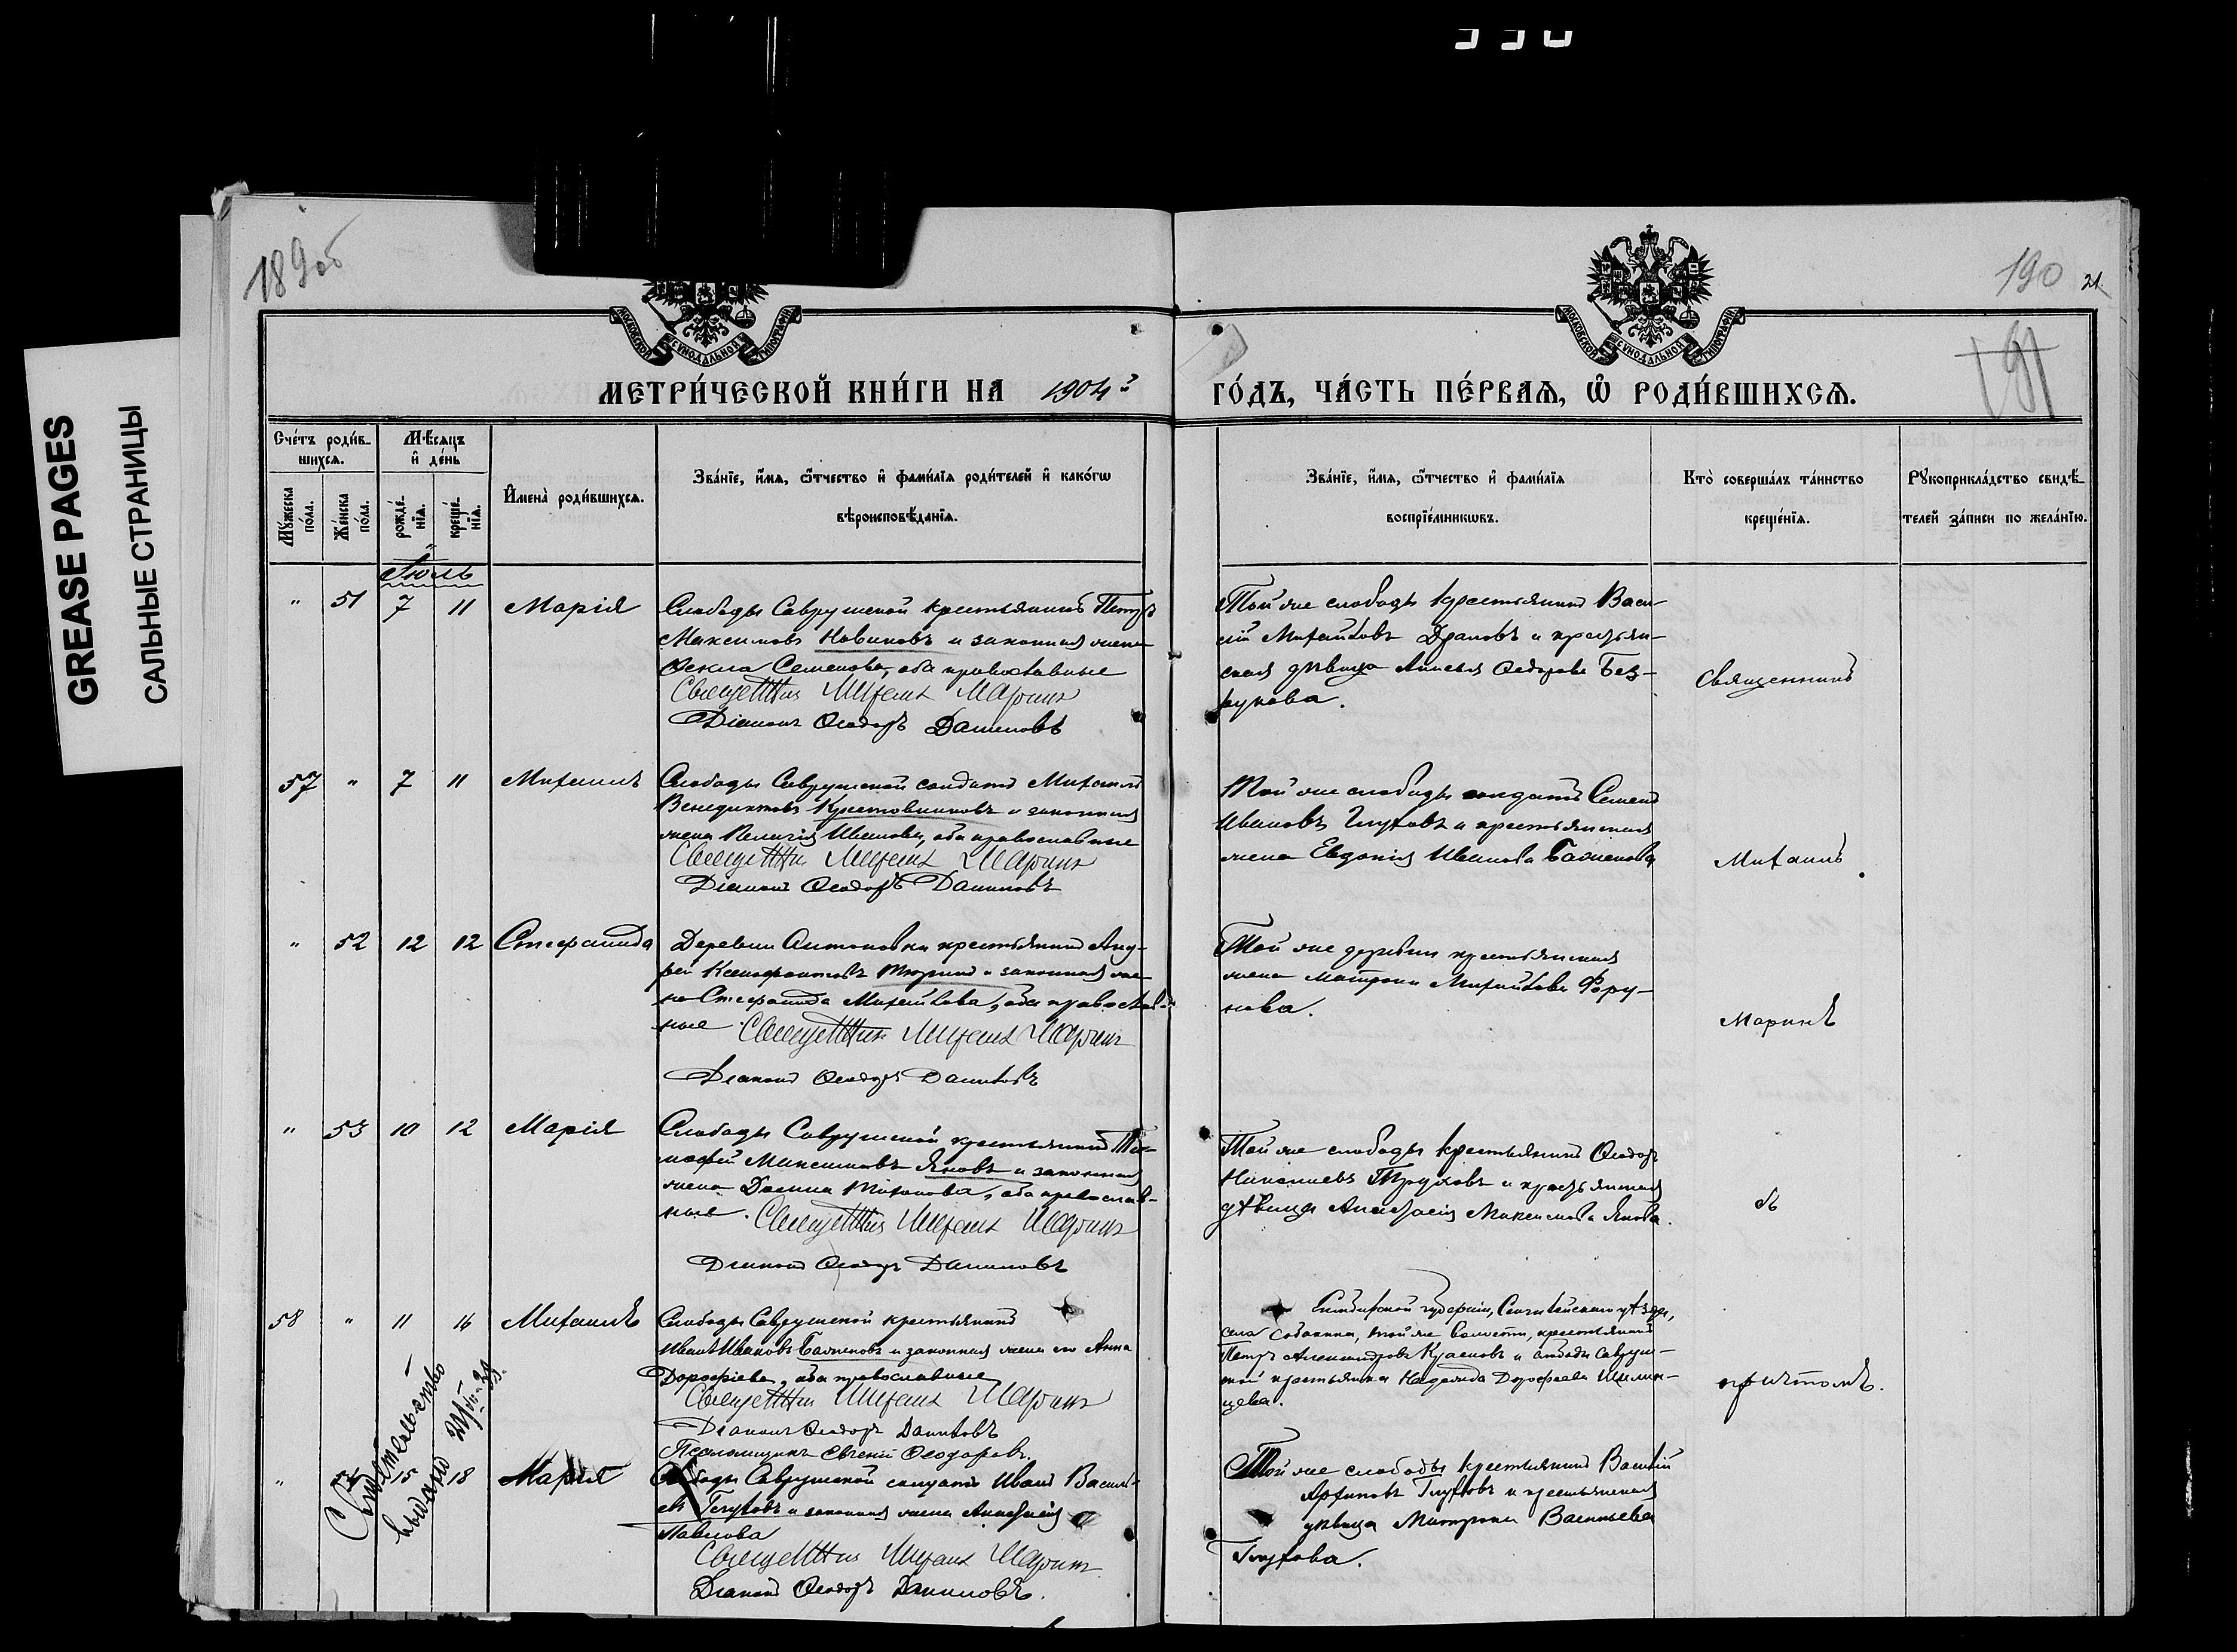 GREASE PAGES
САЛЬНЫЕ СТРАНИЦЫ
189об
190
21
191
МОСКОВСКОЙ СѴНОДАЛЬНОЙ ТИПОГРАФІИ
МОСКОВСКОЙ СѴНОДАЛЬНОЙ ТИПОГРАФІИ
МЕТРИ́ЧЕСКОЙ КНИ́ГИ НА 1904
ГО́ДЪ, ЧА́СТЬ ПЕ́РВАѦ, Ѡ҆ РОДИ́ВШИХСѦ.
Сче́тъ роди́в-
шихсѧ.
Мѣ́сѧцъ
и҆ де́нь
Мꙋ́жеска по́ла.
Же́нска по́ла.
рожде́-
нїѧ.
креще́-
нїѧ.
И҆мена̀ роди́вшихсѧ.
Зва́нїе, и҆́мѧ, ѻ҆́тчество и҆ фами́лїѧ роди́телей и҆ како́гѡ
вѣроисповѣ́данїѧ.
Зва́нїе, и҆́мѧ, ѻ҆́тчество и҆ фами́лїѧ
воспрїе́мникѡвъ.
Кто̀ соверша́лъ та́инство
креще́нїѧ.
Рꙋкоприкла́дство свидѣ́-
телей за́писи по жела́нїю.
Іюль
" 51 7 11 Марія
Слободы Саврушской крестьянинъ Петръ
Максимовъ Новиковъ и законная жена
Ѳекла Семенова, оба православные
Священникъ Михаилъ Маринъ
Діаконъ Ѳеодоръ Даниловъ
Той же слободы крестьянинъ Васи-
лій Михайловъ и крестьян-
ская дѣвица Ѳедорова Без-
рукова.
Священникъ
57 " 7 11 Михаилъ
Слободы Саврушской солдатъ Михаилъ
Венедиктовъ Крестовниковъ и законная
жена Пелагія Иванова, оба православные
Священникъ Михаилъ Маринъ
Діаконъ Ѳеодоръ Даниловъ
Той же слободы солдатъ Семенъ
Ивановъ Глуховъ и крестьянская
жена Евдокія Иванова Баженова
Михаилъ
" 52 12 12 Стефанида
Деревни Антоновки крестьянинъ Анд-
рей Ксенофонтовъ Тюринъ и законная же-
на Стефанида Михайлова, оба православ-
ные. Священникъ Михаилъ Маринъ
Діаконъ Ѳеодоръ Даниловъ
Той же деревни крестьянская
жена Матрона Михайлова Фору-
нова.
Маринъ
" 53 10 12 Марія
Слободы Саврушской крестьянинъ Ти-
мофей Максимовъ Яновъ и законная
жена Домна Тихонова, оба православ-
ные. Священникъ Михаилъ Маринъ
Діаконъ Ѳеодоръ Даниловъ
Той же слободы крестьянинъ Ѳеодоръ
Николаевъ Труховъ и крестьянская
дѣвица Анастасія Максимова Янова.
съ
58 " 11 16 Михаилъ
Слободы Саврушской крестьянинъ
Иванъ Ивановъ Баженовъ и законная жена его Анна
Дорофіева, оба православные
Священникъ Михаилъ Маринъ
Діаконъ Ѳеодоръ Даниловъ
Псаломщикъ Евгеній Ѳеодоровъ.
Симбирской губерніи, Сенгилеевскаго уѣзда,
села Собакина, той же волости, крестьянинъ
Петръ Александровъ Красновъ и слободы Савруш-
ской крестьянка Надежда Дорофеева
цева.
причтомъ.
Свидѣтельство
выдано
" 54 15 18 Марія
Слободы Саврушской солдатъ Иванъ Василь-
евъ Глуховъ и законная жена Анастасія
Павлова
Священникъ Михаилъ Маринъ
Діаконъ Ѳеодоръ Даниловъ.
Той же слободы крестьянинъ Василій
Архиповъ Глуховъ и крестьянская
дѣвица Матрона Васильева
Глухова.